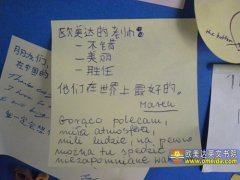 欧美达的老师:
— 不错
— 美丽
— 胜任
他们在世界上最好的。
Marta
Gorąco polecam,
miła atmosfera,
mili ludzie, na pewno
można tu spędzić
niezapomniane
the button
朋友们,
在中国的
欧美达英文书院
www.omeida.com